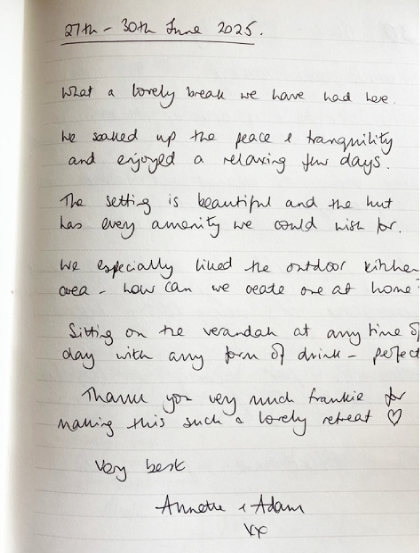 27th - 30th June 2025.
What a lovely break we have had here.
We soaked up the peace & tranquility
and enjoyed a relaxing few days.
The setting is beautiful and the hut
has every amenity we could wish for.
We especially liked the outdoor kitchen
area - how can we create one at home?
Sitting on the verandah at any time of
day with any form of drink - perfect
Thank you very much Frankie for
making this such a lovely retreat ♡
Very best
Annette & Adam
xx